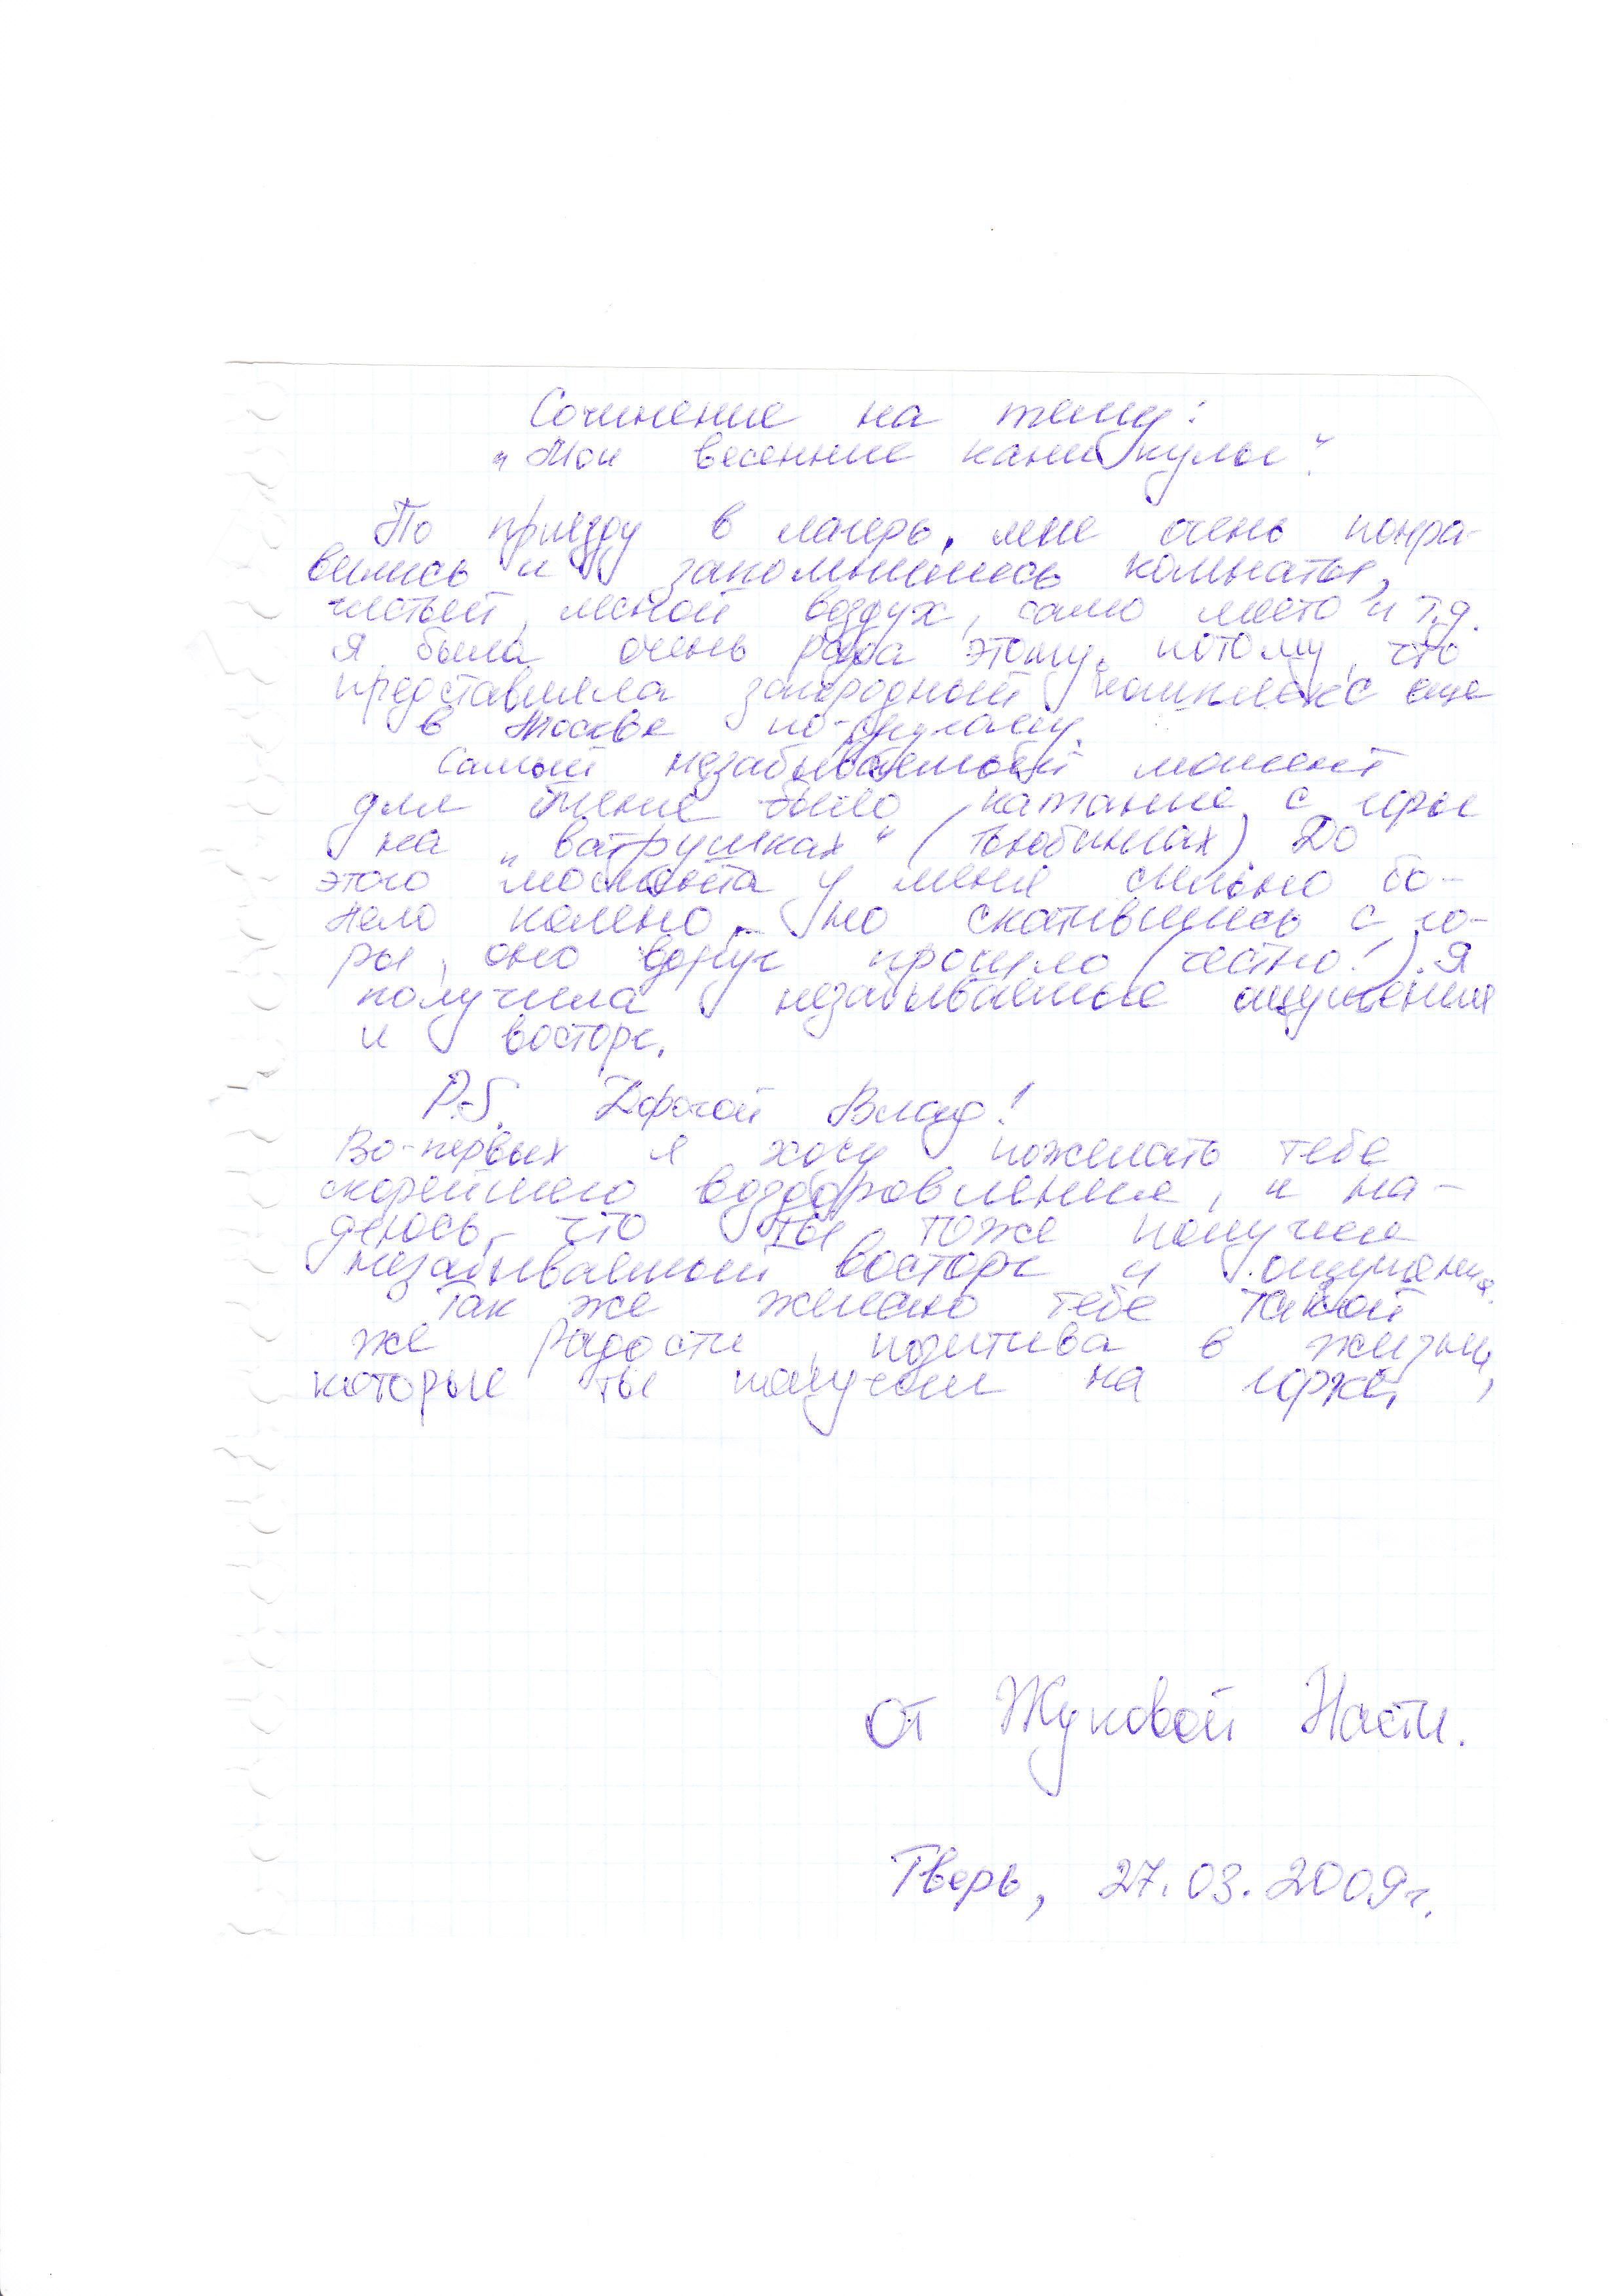 Сочинение на тему:
„Мои весенние каникулы".
По приезду в лагерь, мне очень понра-
вились и запомнились комнаты,
чистый, лесной воздух, само место и т.д.
Я была очень рада этому, потому, что
представляла загородный комплекс еще
в Москве по-другому.
Самый незабываемый момент
для меня было катание с горы
на „ватрушках" (тюбингах). До
этого момента у меня сильно бо-
лело колено, но скатившись с го-
ры, оно вдруг прошло (честно!). Я
получила незабываемые ощущения
и восторг.
P.S. Дорогой Влад!
Во-первых я хочу пожелать тебе
скорейшего выздоровления, и на-
деюсь, что ты тоже получил
незабываемый восторг и ощущения.
Так же желаю тебе такой
же радости, позитива в жизни,
которые ты получил на горке.
От Жуковой Насти.
Тверь, 27.03.2009г.